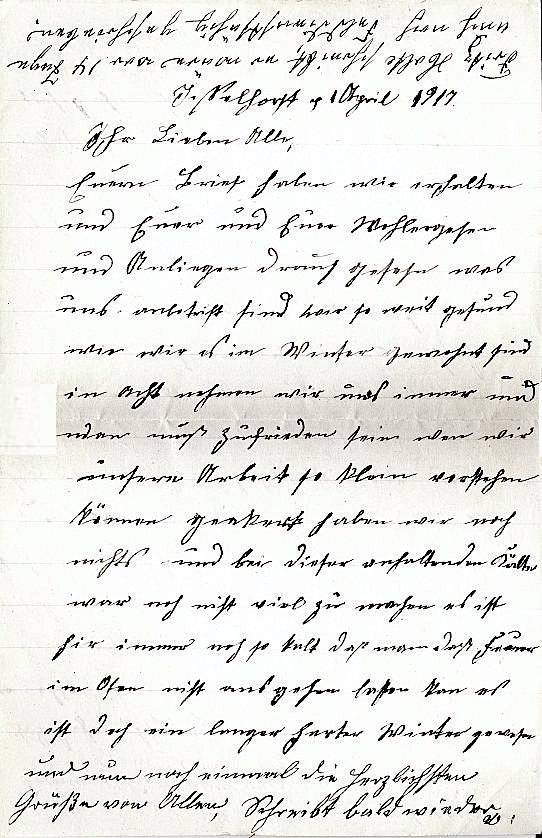 Isselhorst d 1 April 1917
Ihr Lieben Alle,
Euern Brief haben wir erhalten
und Euer und Eure Wohlergehen
und Anliegen draus gesehn was
uns anbetrift sind wir so weit gesund
wie wir es im Winter gewohnt sind
in Acht nehmen wir uns immer und
man muß zufrieden sein wen wir
unsere Arbeit so klein vorstehen
können geakert haben wir noch
nichts und bei dieser anhaltenden Kälte
war noch nist viel zu machen es ist
hir immer noch so kalt daß man daß Feuer
im Ofen nist ausgehen lassen kan es
ist doch ein langer harter Winter gewesen
und nun noch einmal die herzlichsten
Grüße von Allen, Schreibt bald wieder.